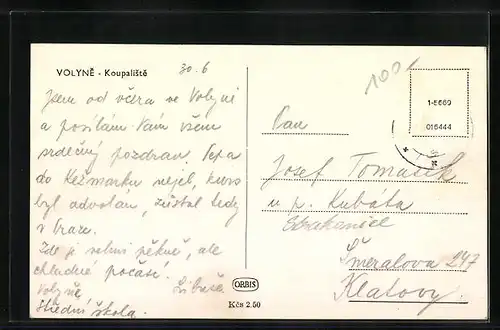 VOLYNĚ - Koupaliště
30.6
Jsem od včera ve Volyni
a posílám Vám všem
srdečný pozdrav. Pepa
do Kežmarku nejel, kurs
byl odvolán, zůstal tedy
v Praze.
Zde je velmi pěkně, ale
chladné počasí.
Volyně, Libuše
Střední škola.
ORBIS
Kčs 2.50
100
1-5669
015444
Pan
Josef Tomášek
u p. Kubáta
Šmeralova 247
Klatovy